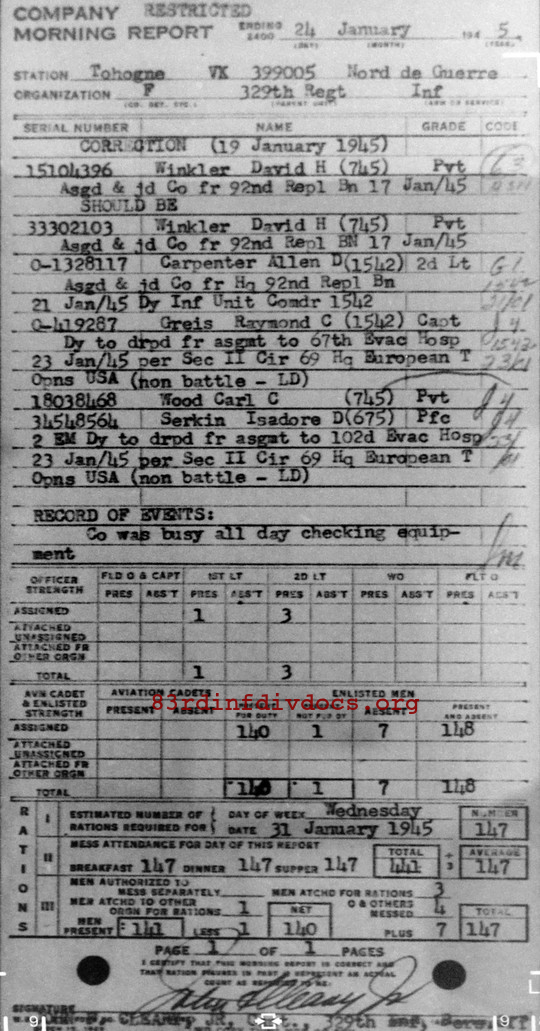 COMPANY RESTRICTED
MORNING REPORT ENDING 2400 24 January 194 5
(DAY) (MONTH) (YEAR)
STATION Tohogne VK 399005 Nord de Guerre
ORGANIZATION F 329th Regt Inf
(CO, DET, ETC.) (PARENT UNIT) (ARM OR SERVICE)
SERIAL NUMBER NAME GRADE CODE
CORRECTION (19 January 1945)
15104396 Winkler David H (745) Pvt
Asgd & jd Co fr 92nd Repl Bn 17 Jan/45
SHOULD BE
33302103 Winkler David H (745) Pvt
Asgd & jd Co fr 92nd Repl BN 17 Jan/45
O-1328117 Carpenter Allen D(1542) 2d Lt
Asgd & jd Co fr Hq 92nd Repl Bn
21 Jan/45 Dy Inf Unit Comdr 1542
O-419287 Greis Raymond C (1542) Capt
Dy to drpd fr asgmt to 67th Evac Hosp
23 Jan/45 per Sec II Cir 69 Hq European T
Opns USA (non battle - LD)
18038468 Wood Carl C (745) Pvt
34548564 Serkin Isadore D(675) Pfc
2 EM Dy to drpd fr asgmt to 102d Evac Hosp
23 Jan/45 per Sec II Cir 69 Hq European T
Opns USA (non battle - LD)
RECORD OF EVENTS:
Co was busy all day checking equip-
ment
OFFICER STRENGTH FLD O & CAPT 1ST LT 2D LT WO FLT O
PRES ABS'T PRES ABS'T PRES ABS'T PRES ABS'T PRES ABS'T
ASSIGNED 1 3
ATTACHED UNASSIGNED
ATTACHED FR OTHER ORGN
TOTAL 1 3
AVN CADET & ENLISTED STRENGTH AVIATION CADETS ENLISTED MEN
83rdinfdivdocs.org
PRESENT ABSENT PRESENT FOR DUTY NOT FOR DY ABSENT PRESENT AND ABSENT
ASSIGNED 140 1 7 148
ATTACHED UNASSIGNED
ATTACHED FR OTHER ORGN
TOTAL 140 1 7 148
RATIONS
I ESTIMATED NUMBER OF RATIONS REQUIRED FOR DAY OF WEEK Wednesday NUMBER
DATE 31 January 1945 147
II MESS ATTENDANCE FOR DAY OF THIS REPORT TOTAL ÷ 3 AVERAGE
BREAKFAST 147 DINNER 147 SUPPER 147 441 147
III MEN AUTHORIZED TO MESS SEPARATELY MEN ATCHD FOR RATIONS 3
MEN ATCHD TO OTHER ORGN FOR RATIONS 1 NET O & OTHERS MESSED 4 TOTAL
MEN PRESENT 141 LESS 1 140 PLUS 7 147
PAGE 1 OF 1 PAGES
I CERTIFY THAT THIS MORNING REPORT IS CORRECT AND
THAT RATION FIGURES IN PART II REPRESENT AN ACTUAL
COUNT AS REPORTED TO ME:
SIGNATURE
CLEARY JR, 329th Inf,
9 9